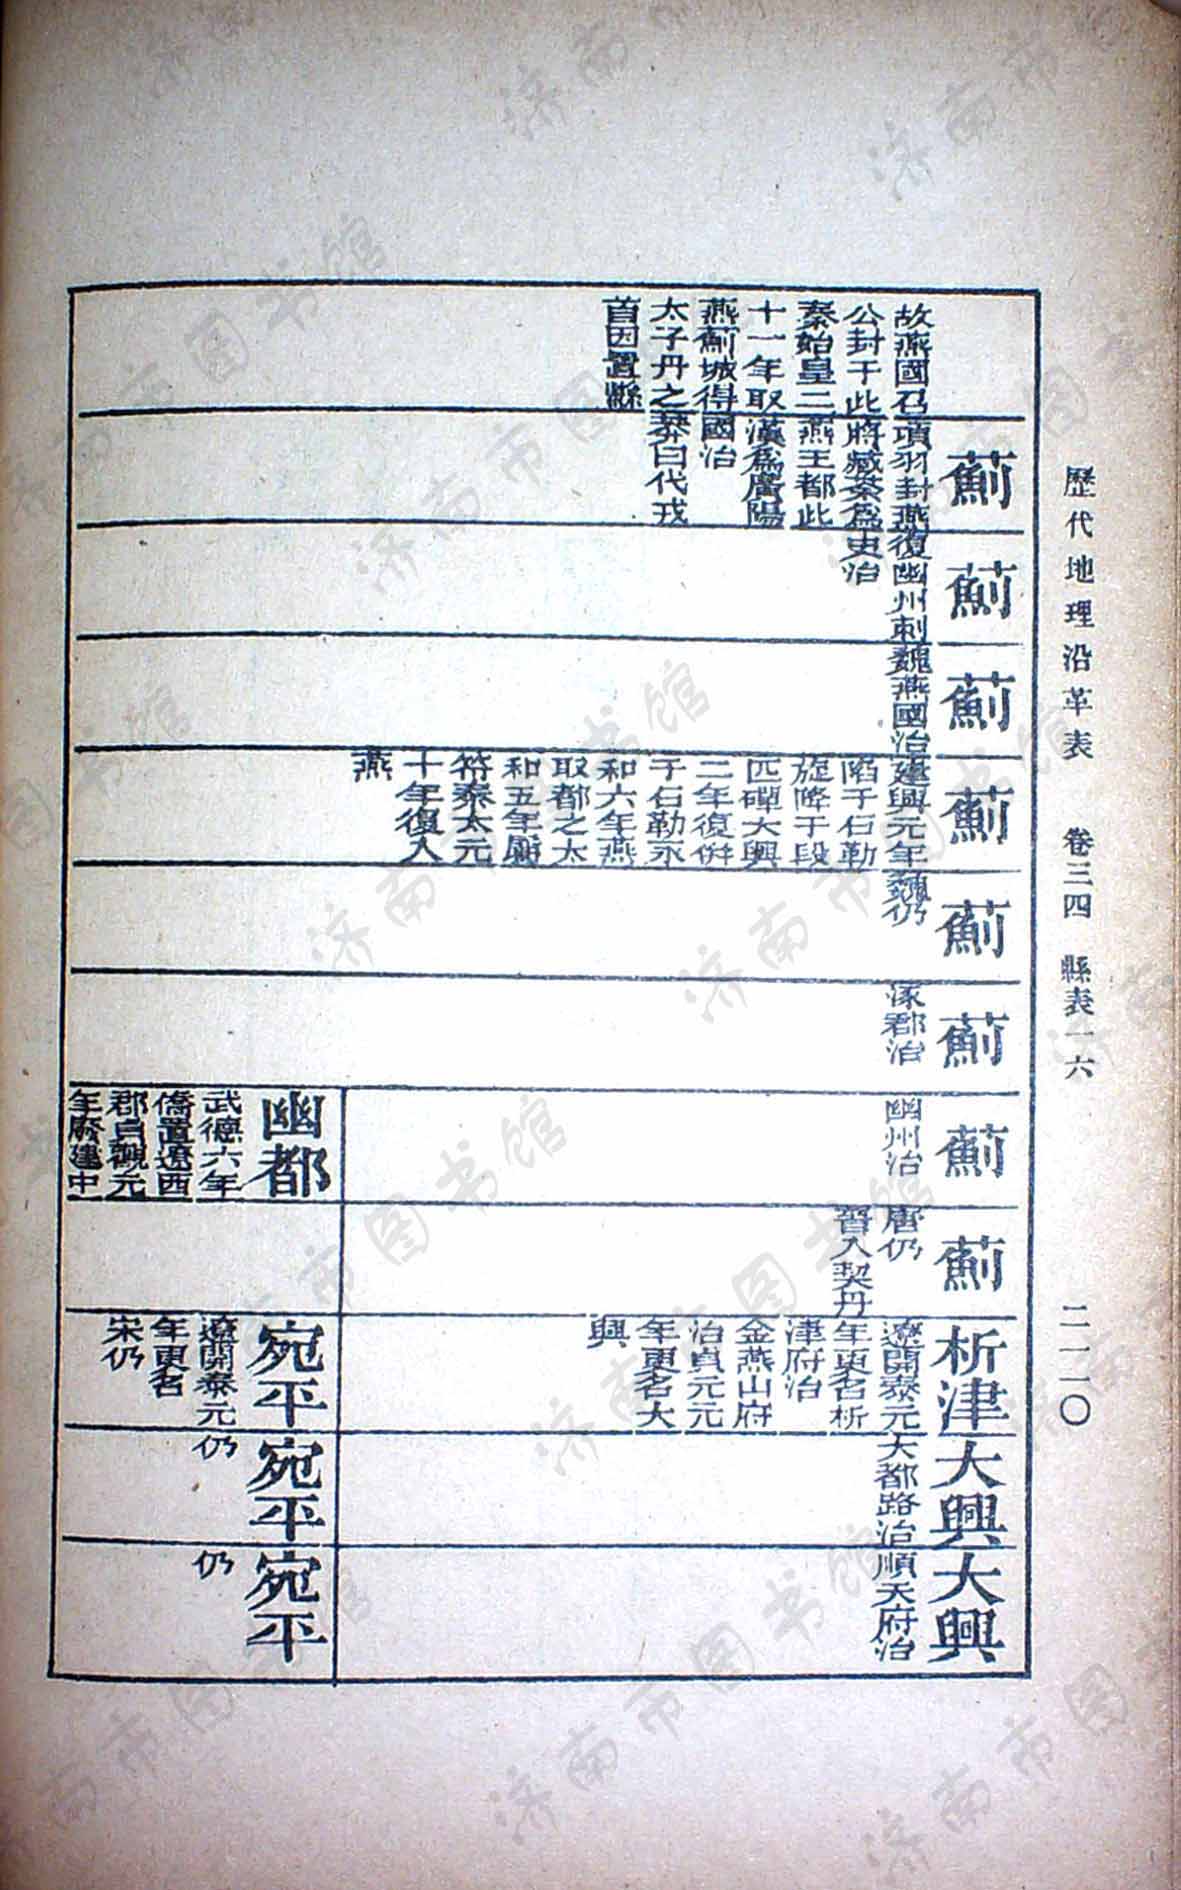 歷代地理沿革表　卷三四　縣表一六　二一一〇
故燕國召
公封于此
秦始皇二
十一年取
燕薊城得
太子丹之
首因置縣
薊
項羽封燕
將藏荼爲
燕王都此
漢爲廣陽
國治
莽曰代戎
薊
復幽州刺
史治
薊
魏燕國治
薊
建興元年
陷于石勒
旋降于段
匹磾大興
二年復併
于石勒永
和六年燕
取都之太
和五年屬
苻秦太元
十年復入
燕
薊
魏仍
薊
涿郡治
薊
幽州治
幽都
武德六年
僑置遼西
郡貞觀元
年廢建中
薊
唐仍
晉入契丹
析津
遼開泰元
年更名析
津府治
金燕山府
治貞元元
年更名大
興
宛平
遼開泰元
年更名
宋仍
大興
大都路治
宛平
仍
大興
順天府治
宛平
仍
济南市图书馆